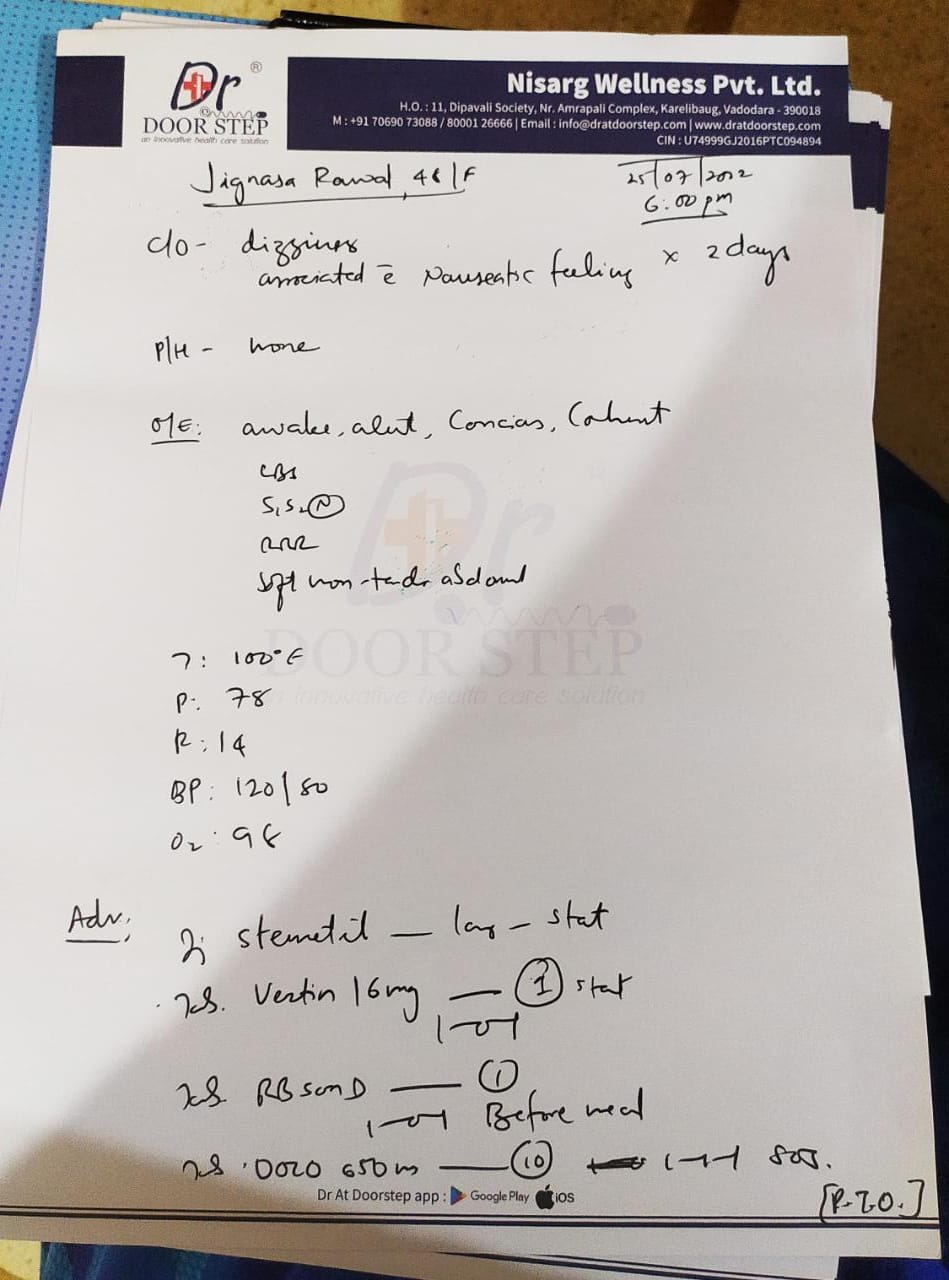 Dr ®
DOOR STEP
an innovative health care solution
Nisarg Wellness Pvt. Ltd.
H.O. : 11, Dipavali Society, Nr. Amrapali Complex, Karelibaug, Vadodara - 390018
M : +91 70690 73088 / 80001 26666 | Email : info@dratdoorstep.com | www.dratdoorstep.com
CIN : U74999GJ2016PTC094894
Jignasa Rawal, 48/F
25/07/2022
6:00 pm
C/O - dizziness
associated c̄ Nauseatic feeling x 2 days
P/H - none
O/E: awake, alert, Concias, Coherent
CBS
S1S2 (N)
RRR
Soft non-tender abdomen
Dr
DOOR STEP
an innovative health care solution
T: 100°F
P: 78
R: 14
BP: 120/80
O2: 98
Adv;
stemetil — - stat
Vertin 16mg — (1) stat
1-0-1
RBson D — (1)
1-0-1 Before meal
DOLO 650m — (10) 1-1-1 SOS.
Dr At Doorstep app : Google Play iOS
[P.T.O.]